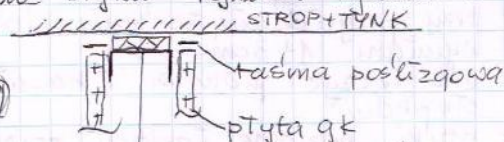 STROP+TYNK
taśma poślizgowa
płyta gk